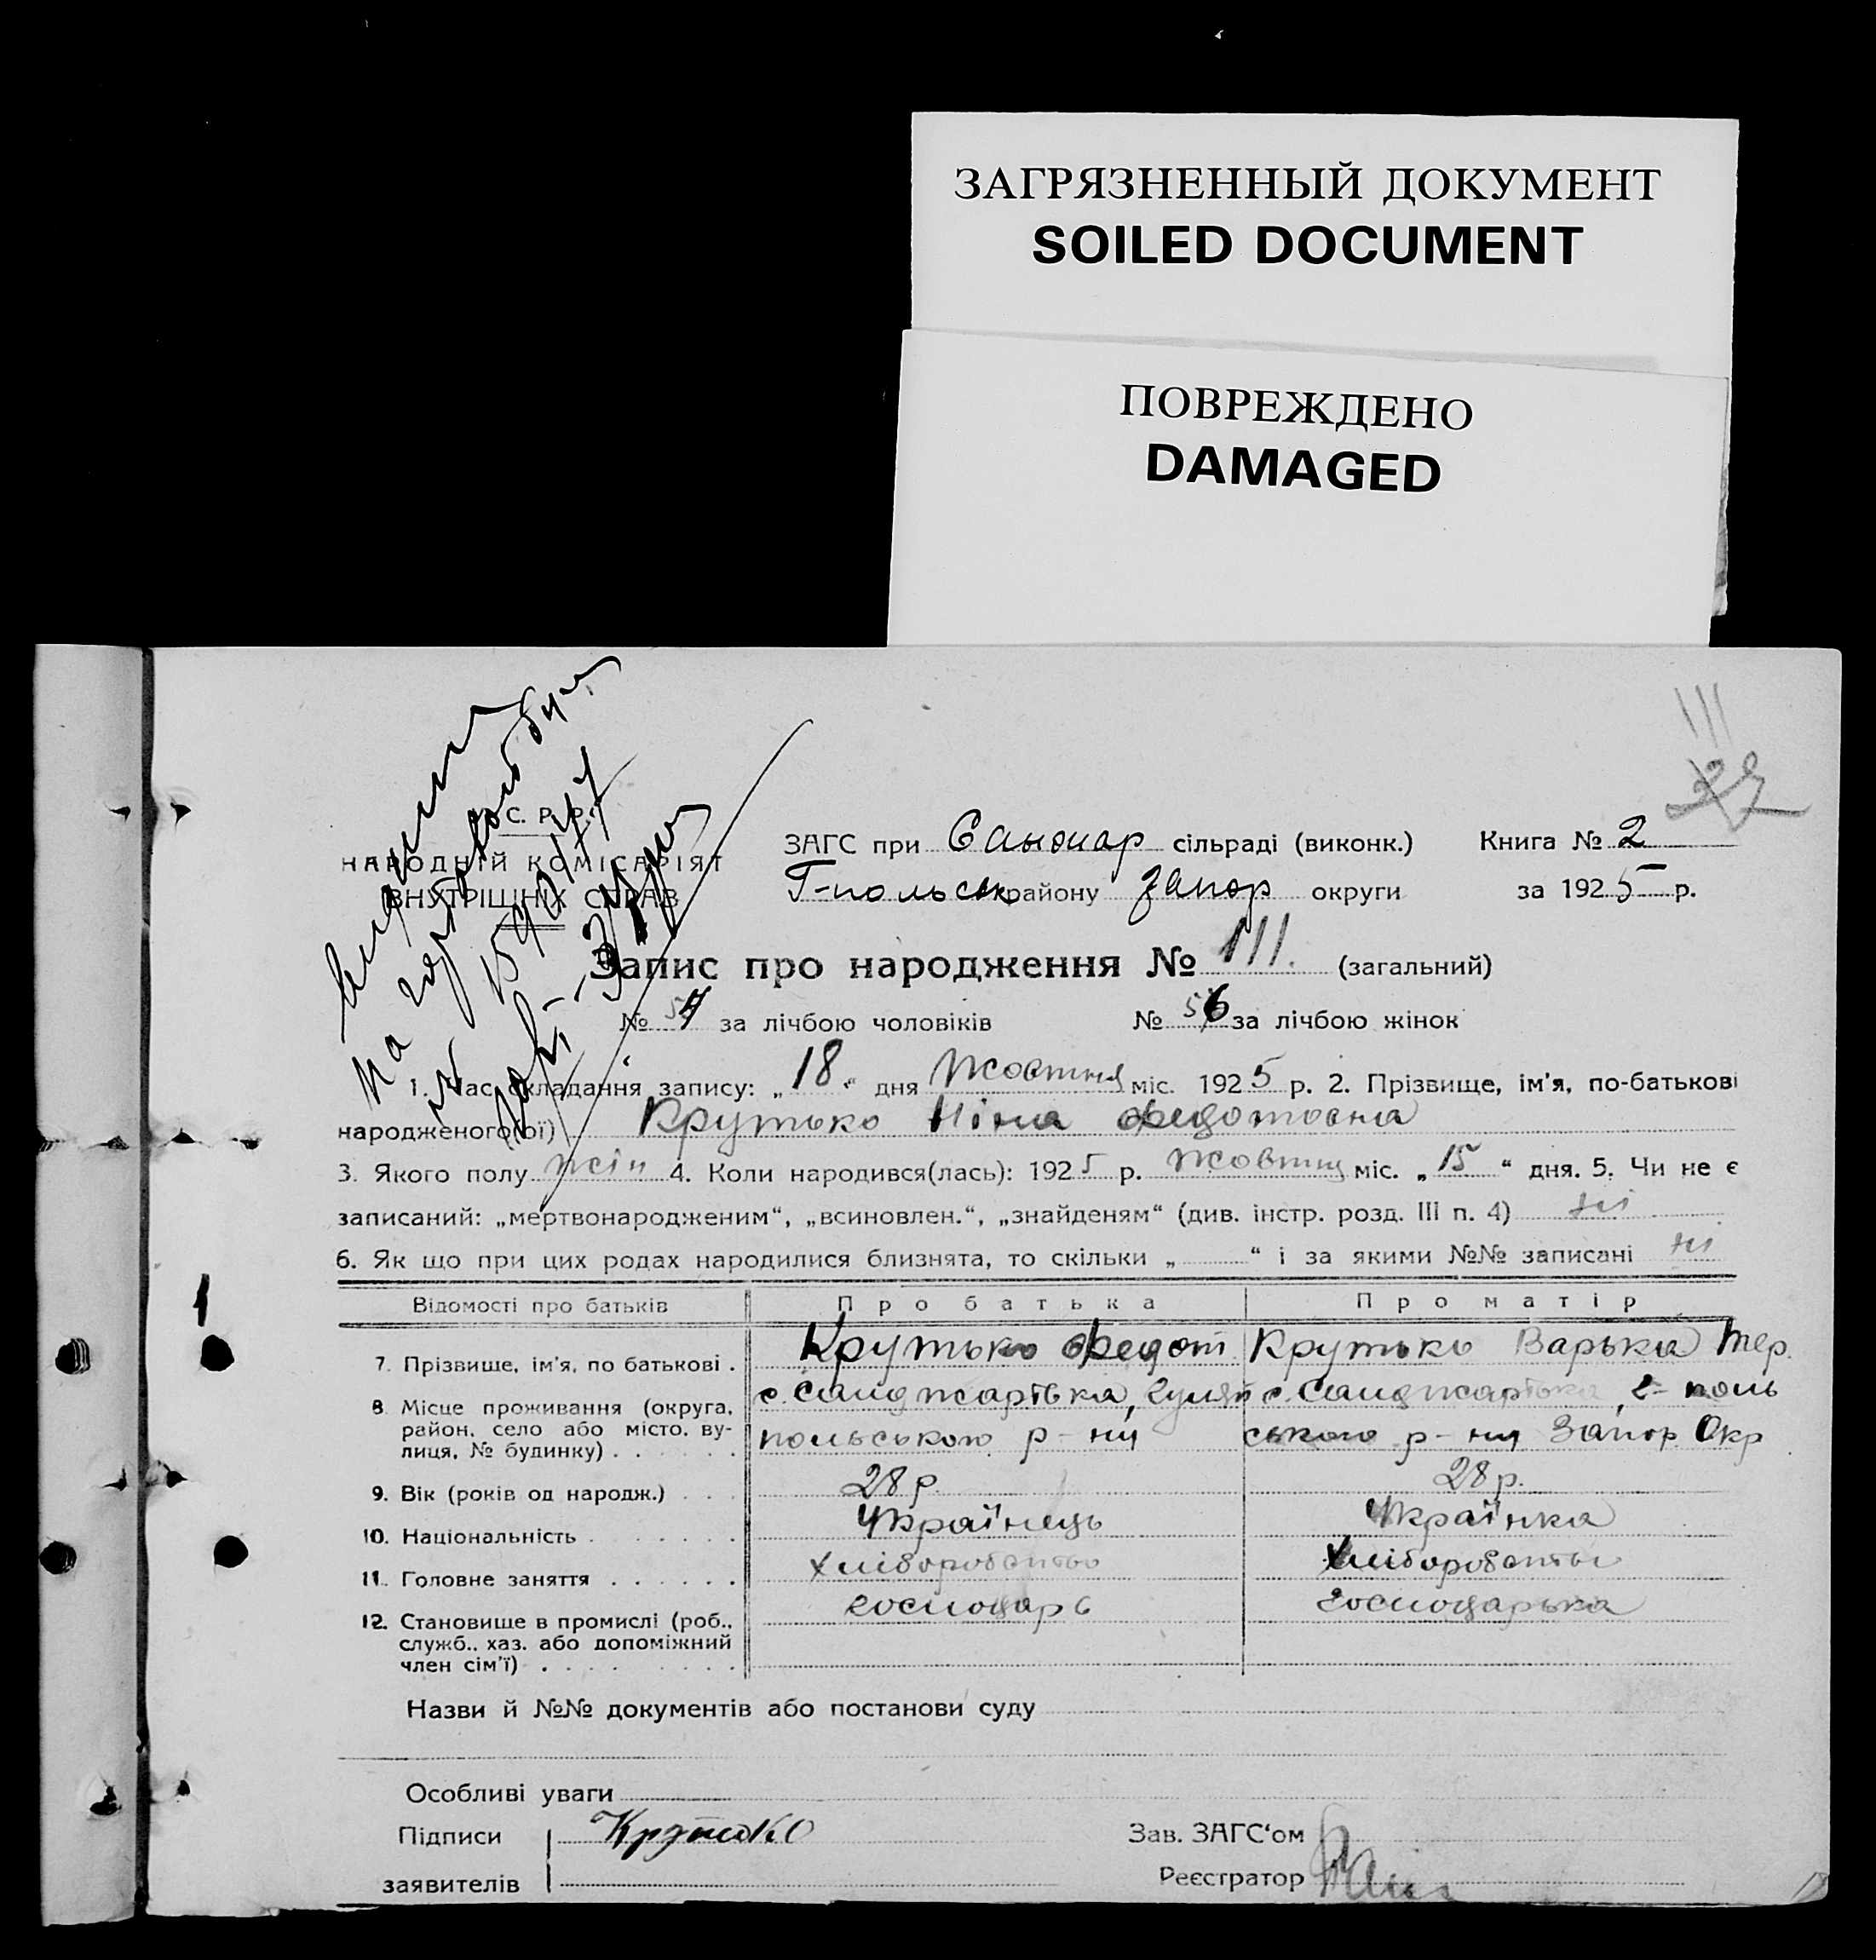 ЗАГРЯЗНЕННЫЙ ДОКУМЕНТ
SOILED DOCUMENT
ПОВРЕЖДЕНО
DAMAGED
111
С. Р. Р.
НАРОДНІЙ КОМІСАРІЯТ
ВНУТРІШНІХ СПРАВ
ЗАГС при Санджар сільраді (виконк.) Книга № 2
Г-польськ району Запор округи за 1925 р.
Запис про народження № 111. (загальний)
№ за лічбою чоловіків № 56 за лічбою жінок
1. Час складання запису: „18“ дня Жовтня міс. 1925 р. 2. Прізвище, ім'я, по-батькові
народженого(ої) Крутько Ніна Федотовна
3. Якого полу жін 4. Коли народився(лась): 1925 р. Жовтня міс. „15“ дня. 5. Чи не є
записаний: „мертвонародженим“, „всиновлен.“, „знайденям“ (див. інстр. розд. III п. 4) ні
6. Як що при цих родах народилися близнята, то скільки „ “ і за якими №№ записані ні
Відомості про батьків Про батька Про матір
7. Прізвище, ім'я, по батькові . Крутько Федот Крутько Варька Тер.
8. Місце проживання (округа, район, село або місто, ву-
лиця, № будинку) . с. Санджарівка, Гуляй с. Санджарівка, Г-поль
польського р-ну ського р-ну Запор Окр
9. Вік (років од народж.) 28 р 28 р.
10. Національність Українець Українка
11. Головне заняття Хліборобство Хліборобство
12. Становище в промислі (роб., господарь господарька
служб., хаз. або допоміжний
член сім'ї)
Назви й №№ документів або постанови суду
Особливі уваги
Підписи Крутько Зав. ЗАГС‘ом
заявителів Реєстратор